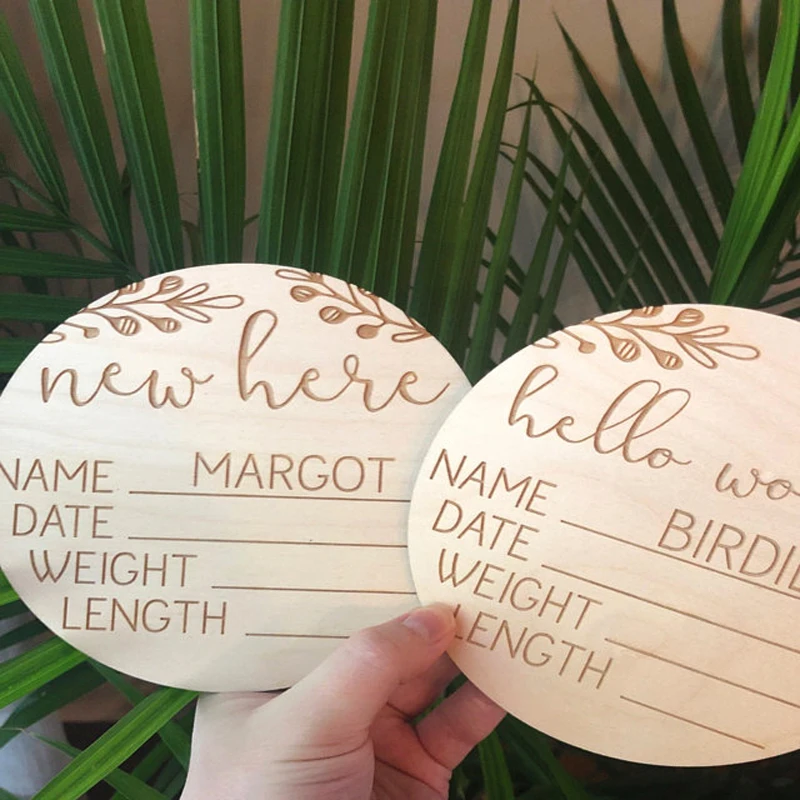 new here
NAME MARGOT
DATE
WEIGHT
LENGTH
hello
NAME
DATE
WEIGHT
LENGTH